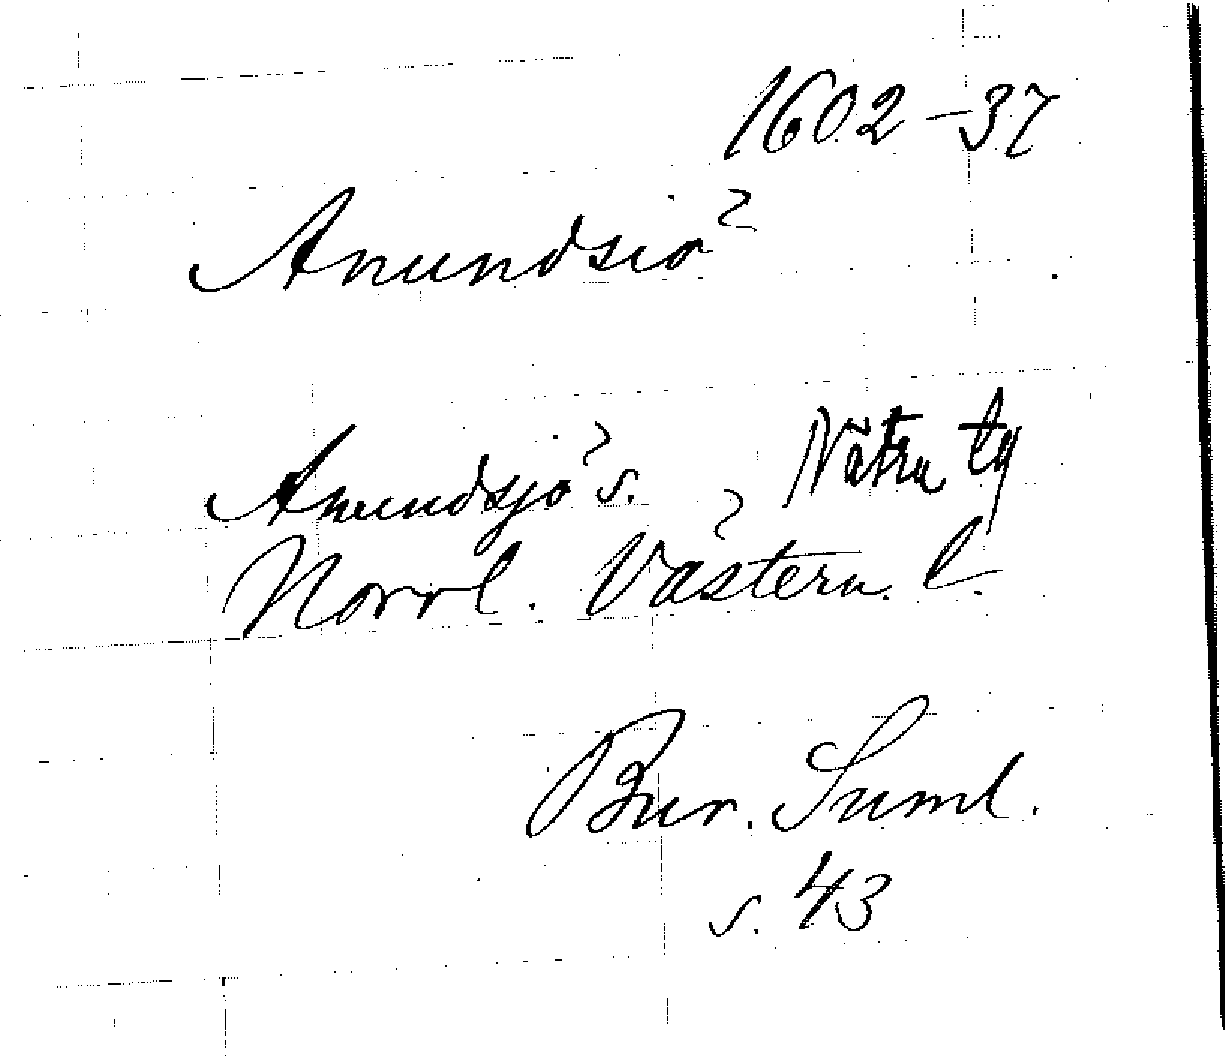 1602–37
Anundsiö
Anundsjö s. Nätra tg
Norrl. Västern. l.
Bur. Suml.
s. 43